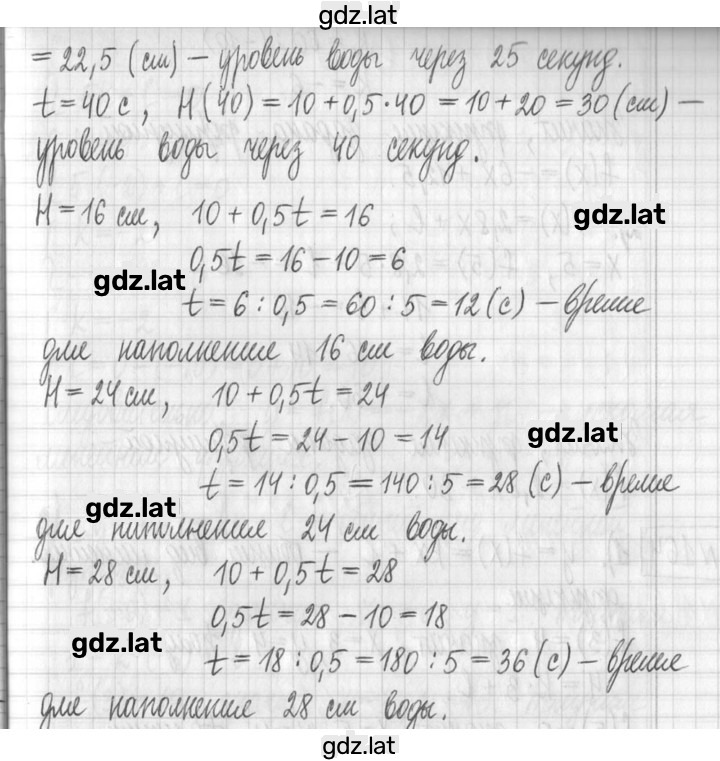 gdz.lat
= 22,5 (см) – уровень воды через 25 секунд.
t = 40 с, H(40) = 10 + 0,5·40 = 10 + 20 = 30 (см) –
уровень воды через 40 секунд.
H = 16 см, 10 + 0,5t = 16
gdz.lat
0,5t = 16 – 10 = 6
gdz.lat
t = 6 : 0,5 = 60 : 5 = 12 (с) – время
для наполнения 16 см воды.
H = 24 см, 10 + 0,5t = 24
gdz.lat
0,5t = 24 – 10 = 14
t = 14 : 0,5 = 140 : 5 = 28 (с) – время
gdz.lat
для наполнения 24 см воды.
H = 28 см, 10 + 0,5t = 28
0,5t = 28 – 10 = 18
gdz.lat
t = 18 : 0,5 = 180 : 5 = 36 (с) – время
для наполнения 28 см воды.
gdz.lat